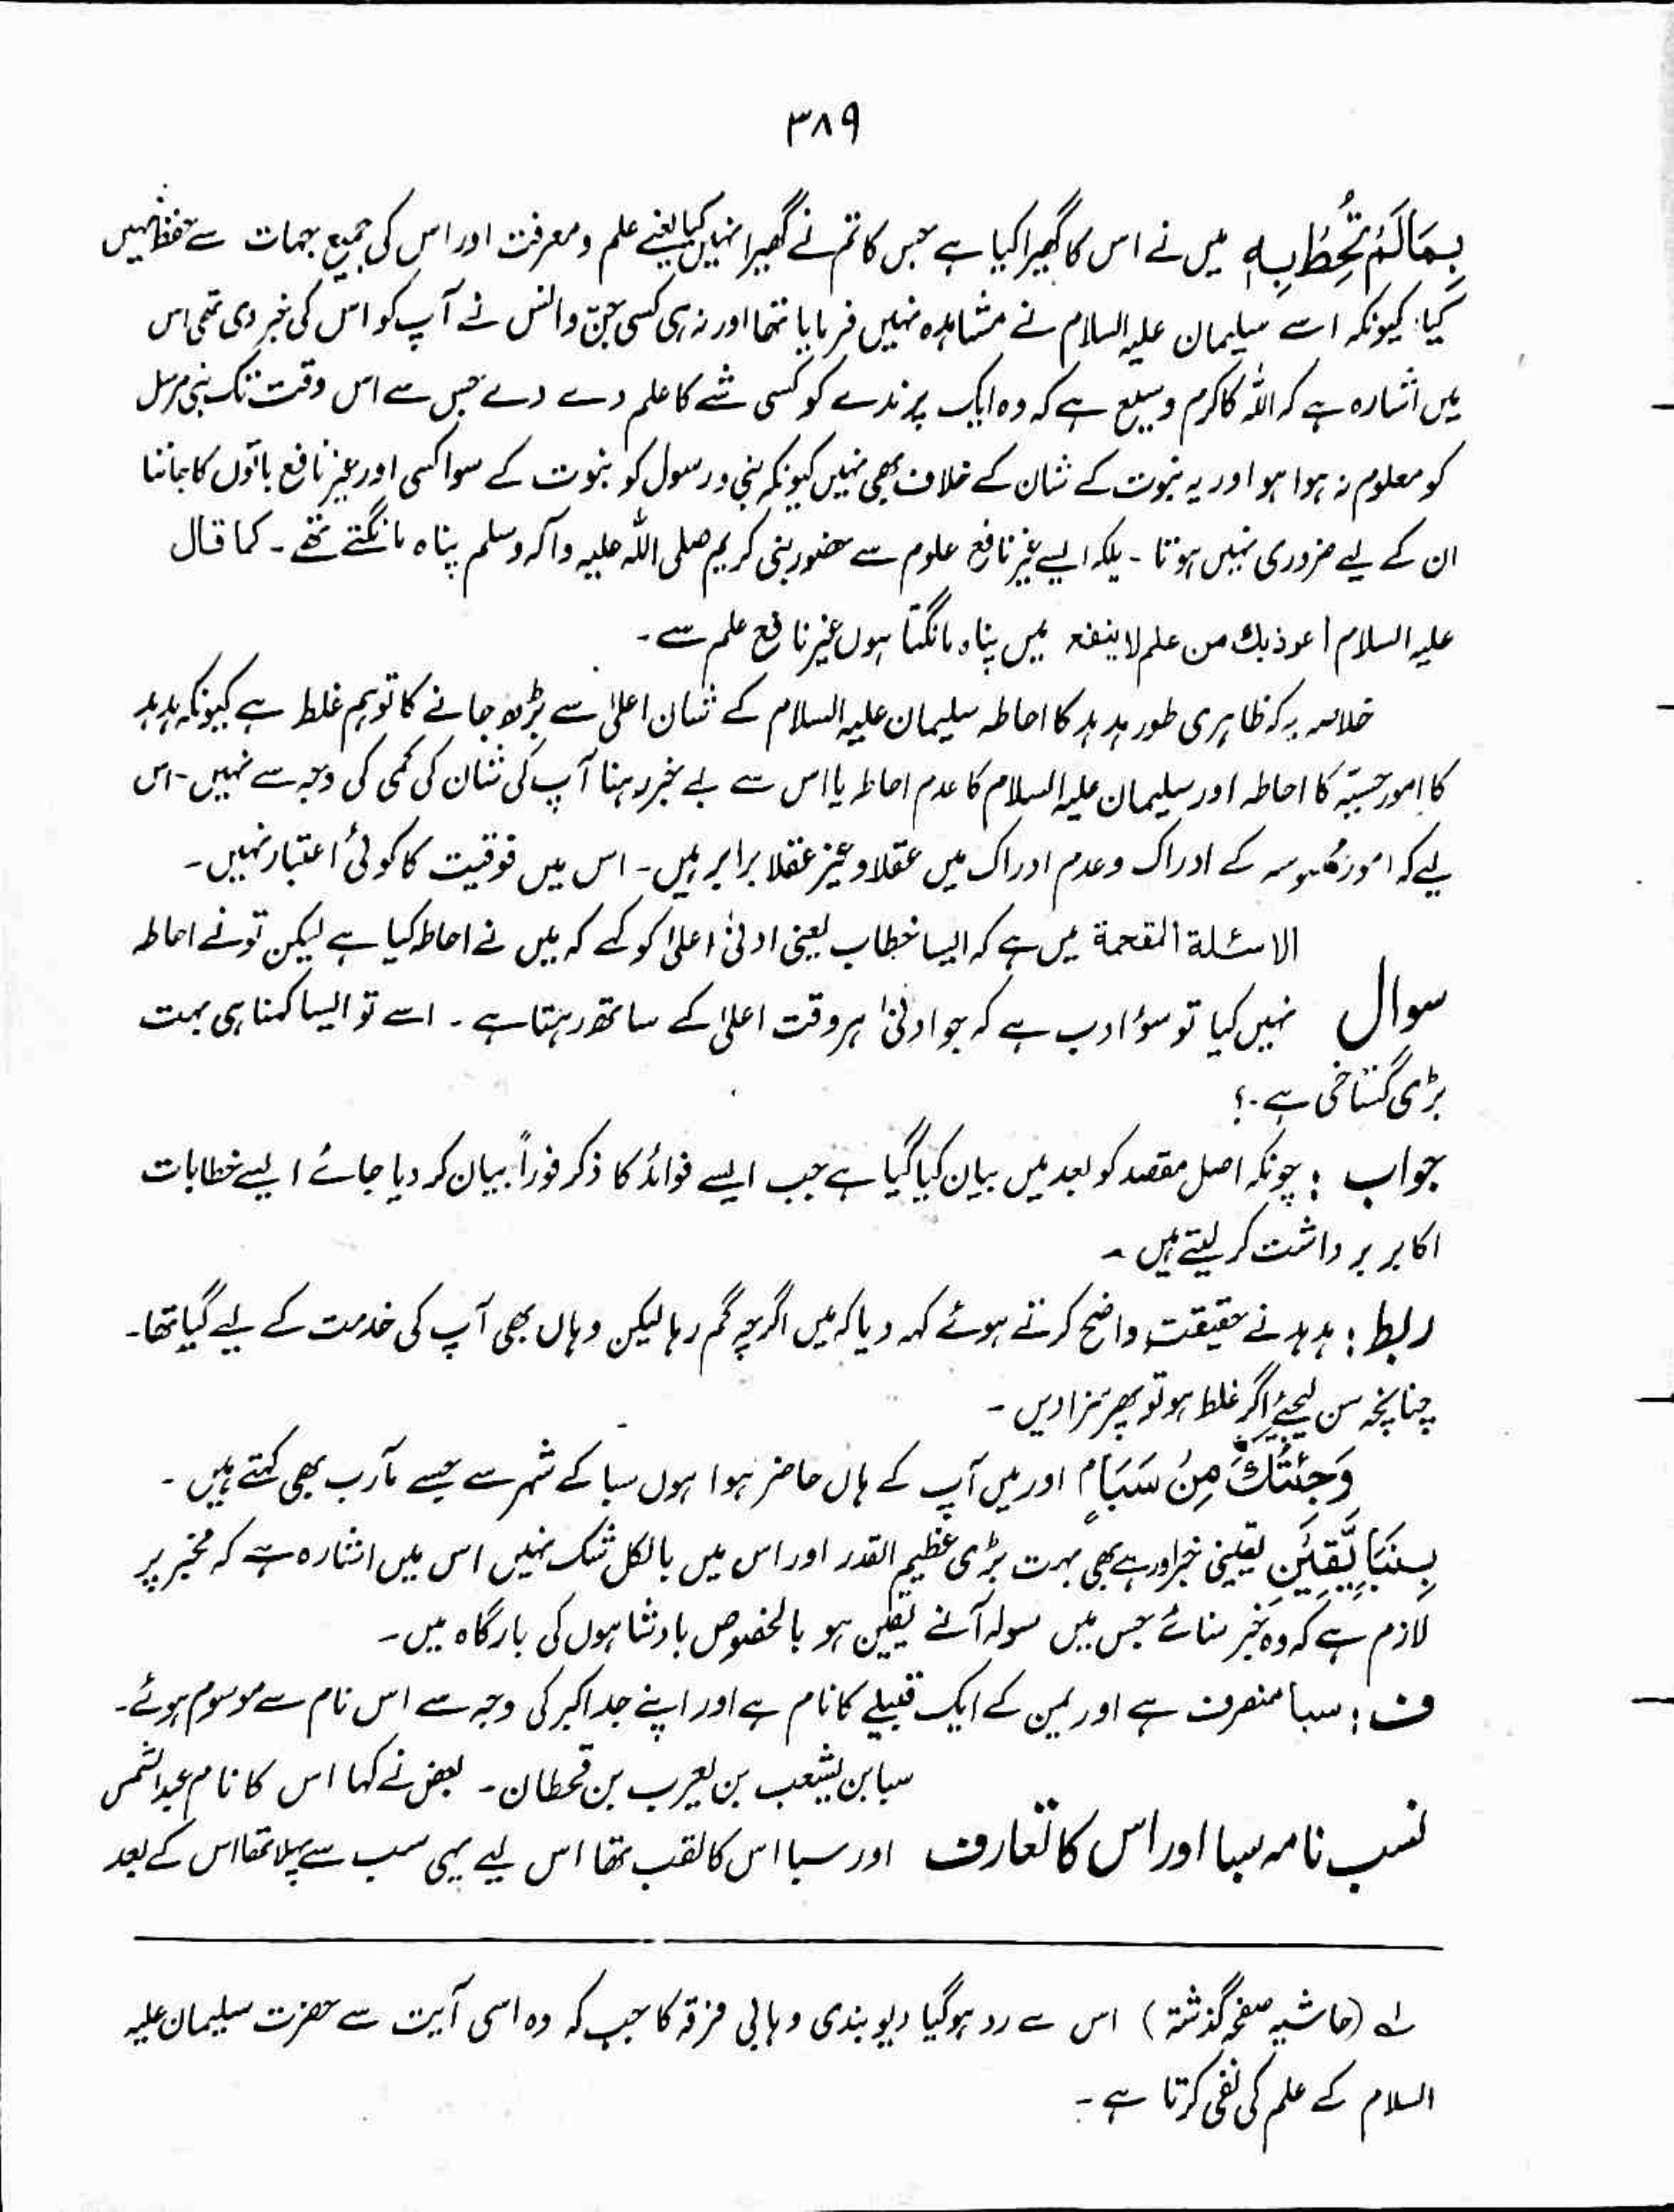 ۳۸۹
بِمَا لَمْ تُحِطْ بِهٖ میں نے اس کا گھیرا کیا ہے جس کا تم نے گھیرا نہیں کیا یعنے علم و معرفت اور اس کی جمیع جہات سے حفظ نہیں
کیا۔ کیونکہ اسے سلیمان علیہ السلام نے مشاہدہ نہیں فرمایا تھا اور نہ ہی کسی جنّ و انس نے آپ کو اس کی خبر دی تھی اس
میں اشارہ ہے کہ اللہ کا کرم وسیع ہے کہ وہ ایک پرندے کو کسی شے کا علم دے دے جس سے اس وقت تک نبی مرسل
کو معلوم نہ ہوا ہو اور یہ نبوت کے شان کے خلاف بھی نہیں کیونکہ نبی و رسول کو نبوت کے سوا کسی اور غیر نافع باتوں کا جاننا
ان کے لیے ضروری نہیں ہوتا ۔ بلکہ ایسے غیر نافع علوم سے حضور نبی کریم صلی اللہ علیہ وآلہ وسلم پناہ مانگتے تھے ۔ کما قال
علیہ السلام اعوذ بك من علم لا ینفع میں پناہ مانگتا ہوں غیر نافع علم سے ۔
خلاصہ یہ کہ ظاہری طور ہدہد کا احاطہ سلیمان علیہ السلام کے شان اعلیٰ سے بڑھ جانے کا توہم غلط ہے کیونکہ ہدہد
کا امور حسیّہ کا احاطہ اور سلیمان علیہ السلام کا عدم احاطہ یا اس سے بے خبر رہنا آپ کی شان کی کمی کی وجہ سے نہیں ۔ اس
لیے کہ امور محسوسہ کے ادراک و عدم ادراک میں عقلا و غیر عقلا برابر ہیں ۔ اس میں فوقیت کا کوئی اعتبار نہیں ۔
الاسئلة المقحمة میں ہے کہ ایسا خطاب یعنی ادنیٰ اعلیٰ کو کہے کہ میں نے احاطہ کیا ہے لیکن تو نے احاطہ
سوال نہیں کیا تو سؤ ادب ہے کہ جو ادنیٰ ہر وقت اعلیٰ کے ساتھ رہتا ہے ۔ اسے تو ایسا کہنا ہی بہت
بڑی گستاخی ہے ۔؟
جواب : چونکہ اصل مقصد کو بعد میں بیان کیا گیا ہے جب ایسے فوائد کا ذکر فوراً بیان کر دیا جائے ایسے خطابات
اکابر برداشت کر لیتے ہیں ۔
ربط : ہدہد نے حقیقت واضح کرتے ہوئے کہہ دیا کہ میں اگرچہ گم رہا لیکن وہاں بھی آپ کی خدمت کے لیے گیا تھا ۔
چنانچہ سن لیجئے اگر غلط ہو تو پھر سزا دیں ۔
وَجِئْتُكَ مِنْ سَبَاٍۭ اور میں آپ کے ہاں حاضر ہوا ہوں سبا کے شہر سے جسے مآرب بھی کہتے ہیں ۔
بِنَبَاٍ یَّقِیْنٍ یقینی خبر اور ہے بھی بہت بڑی عظیم القدر اور اس میں بالکل شک نہیں اس میں اشارہ ہے کہ مخبر پر
لازم ہے کہ وہ خبر سنائے جس میں سولہ آنے یقین ہو بالخصوص بادشاہوں کی بارگاہ میں ۔
ف : سبا منصرف ہے اور یمن کے ایک قبیلے کا نام ہے اور اپنے جد اکبر کی وجہ سے اس نام سے موسوم ہوئے ۔
سبا بن یشعب بن یعرب بن قحطان ۔ بعض نے کہا اس کا نام عبدالشمس
نسب نامہ سبا اور اس کا تعارف اور سبا اس کا لقب تھا اس لیے یہی سب سے پہلا تھا اس کے بعد
لے (حاشیہ صفحہ گذشتہ) اس سے رد ہوگیا دیوبندی وہابی فرقہ کا جب کہ وہ اسی آیت سے حضرت سلیمان علیہ
السلام کے علم کی نفی کرتا ہے ۔